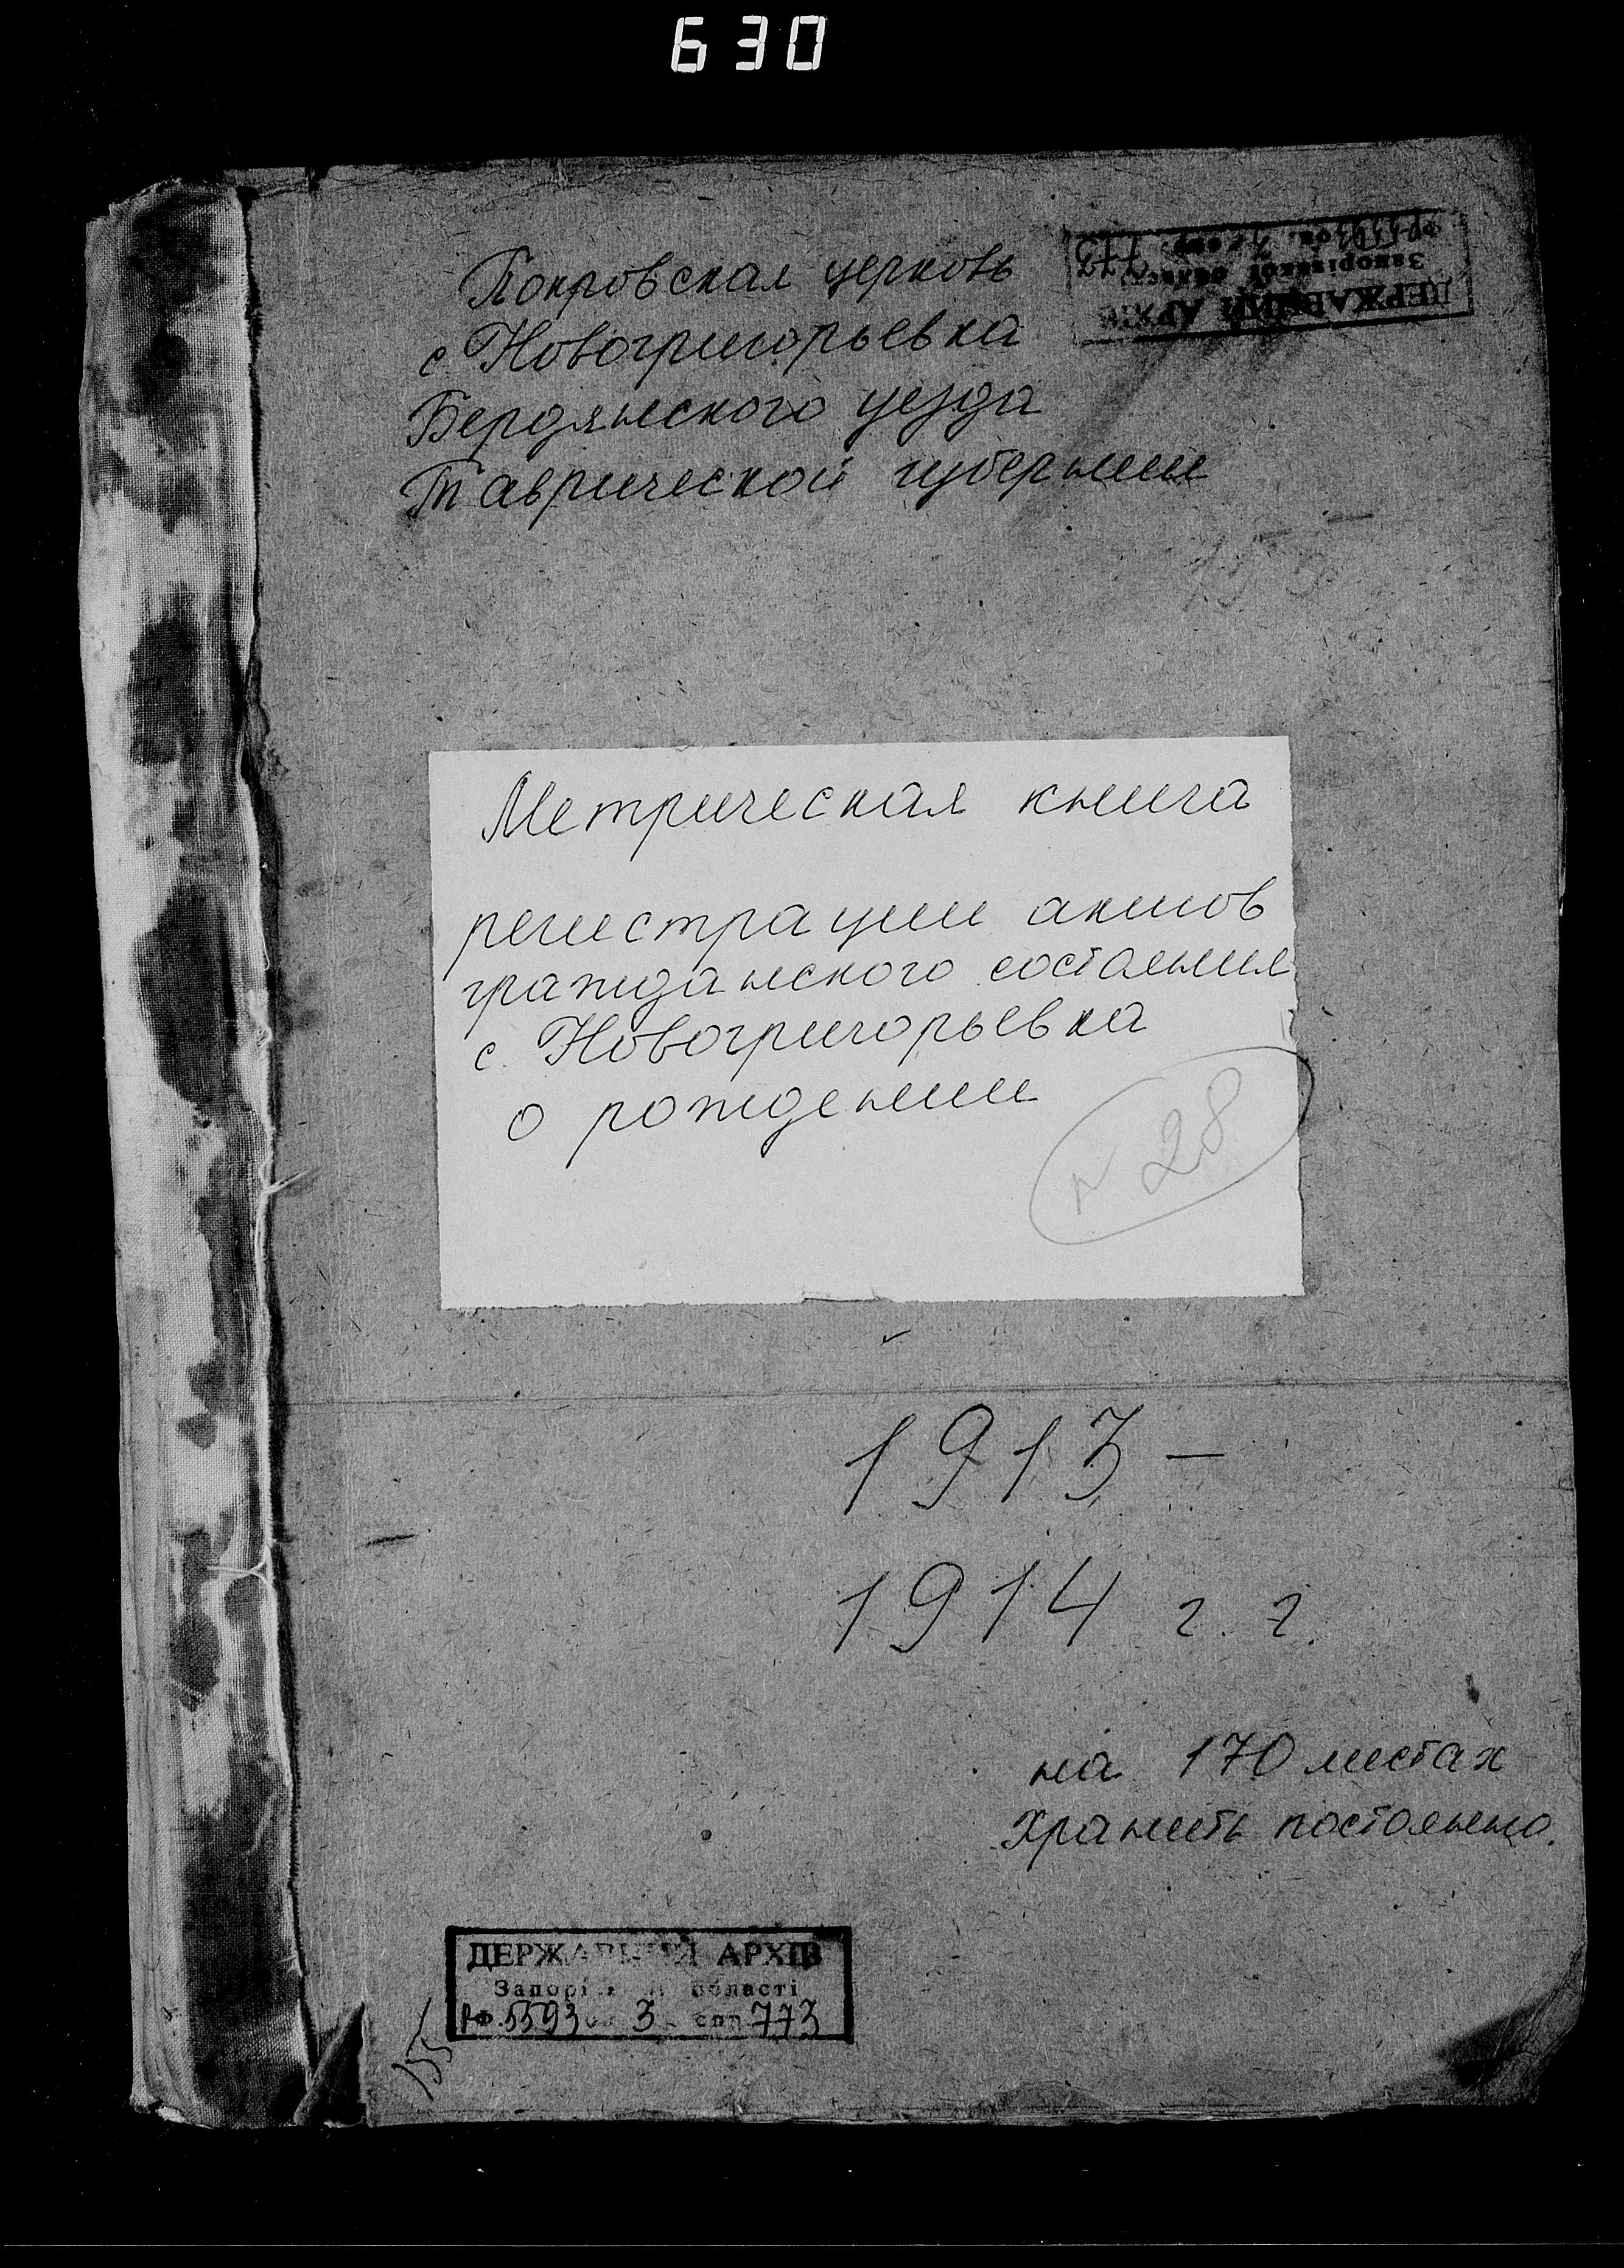 630
Покровская церковь
с. Новогригорьевка
Бердянского уезда
Таврической губернии
ДЕРЖАВНИЙ АРХІВ
Запорізької області
773
Метрическая книга
регистрации актов
гражданского состояния
с. Новогригорьевка
о рождении
N 28
1913 –
1914 г. г.
на 170 листах
Хранить постоянно.
ДЕРЖАВНИЙ АРХІВ
Запорізької області
РФ. 5593 оп 3 спр 773